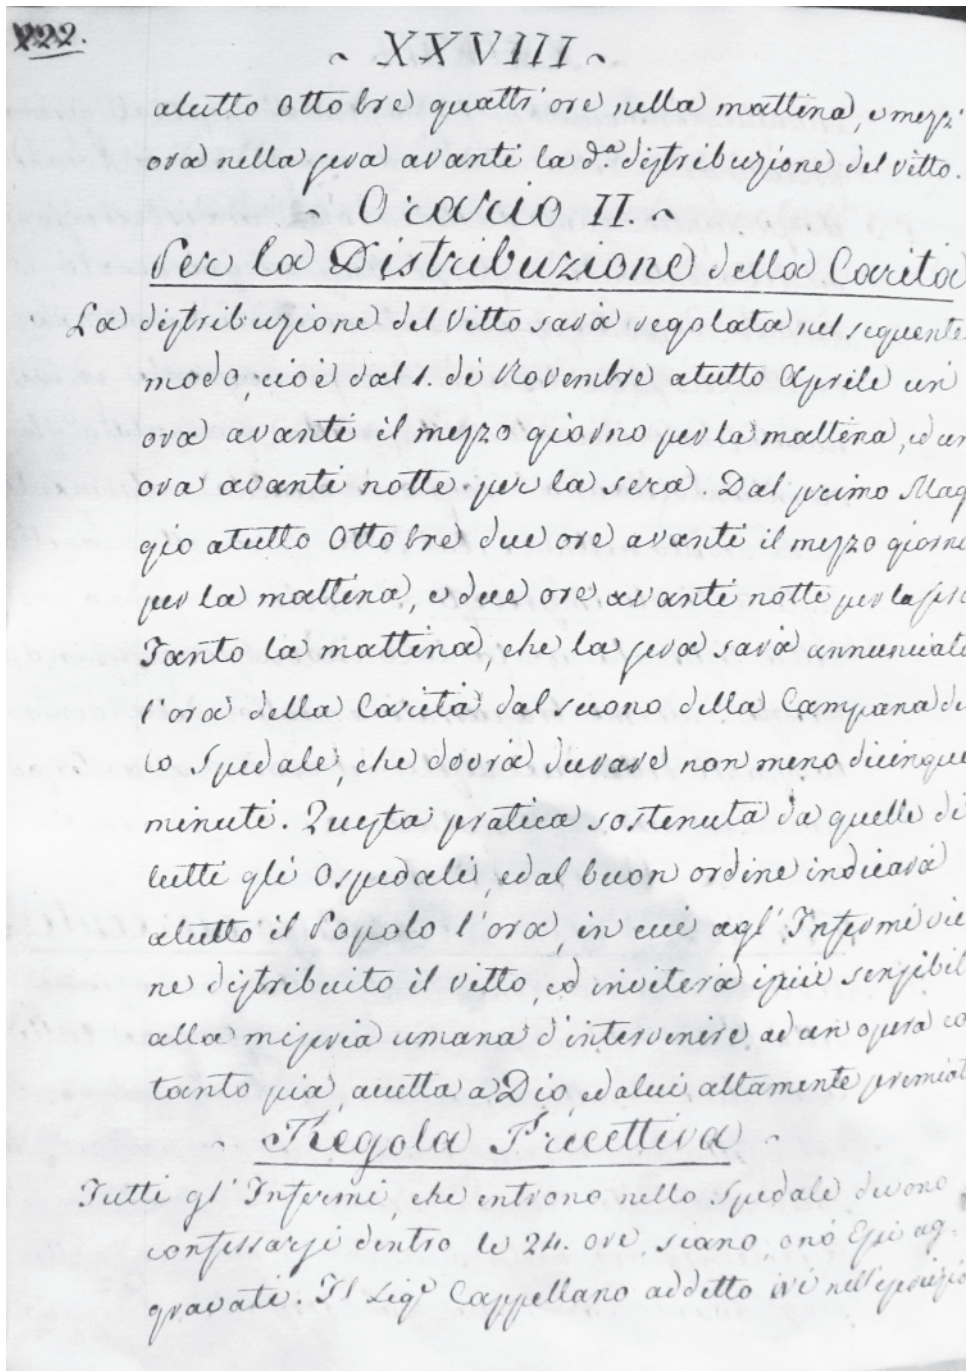 222.
~ XXVIII ~
atutto Ottobre quattr'ore nella mattina, e mezz'
ora nella sera avanti la d.ª distribuzione del vitto.
~ Orario II. ~
Per la Distribuzione della Carità
La distribuzione del Vitto sarà regolata nel seguente
modo, cioè dal 1. di Novembre atutto Aprile un'
ora avanti il mezzo giorno per la mattina, ed un
ora avanti notte per la sera. Dal primo Mag
gio atutto Ottobre due ore avanti il mezzo giorno
per la mattina, e due ore avanti notte per la sera
Tanto la mattina, che la sera sarà annunciata
l'ora della Carità dal suono della Campana de
lo Spedale, che dovrà durare non meno dicinque
minuti. Questa pratica sostenuta da quelle di
tutti gli Ospedali, edal buon ordine indicarà
atutto il Popolo l'ora, in cui agl'Infermi vie
ne distribuito il vitto, ed inviterà ipiù sensibil
alla miseria umana d'intervenire ad un opera co
tanto pia, accetta a Dio, edalui altamente premiat
~ Regola Precettiva ~
Tutti gl'Infermi, che entrono nello Spedale devono
confessarsi dentro le 24. ore siano onò Essi ag-
gravati. Il Sigʳ Cappellano addetto ivi nell'esercizio